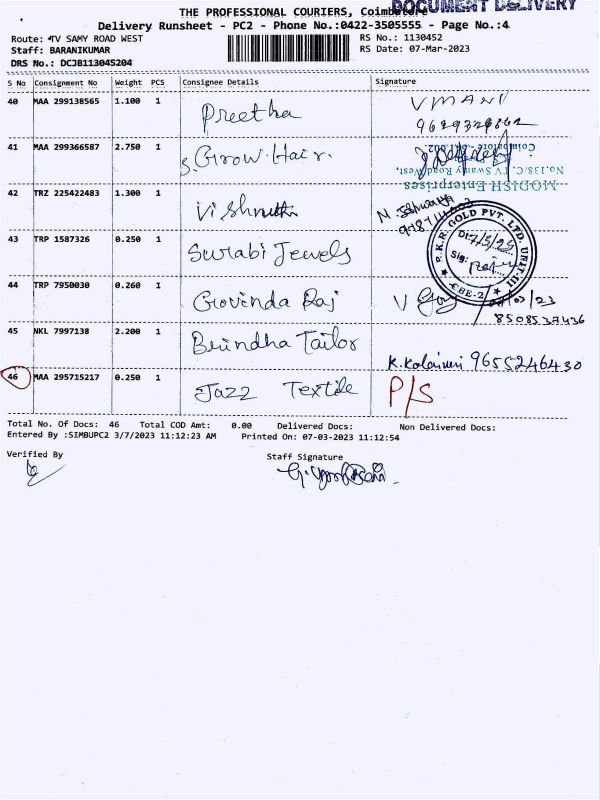 DOCUMENT DELIVERY
THE PROFESSIONAL COURIERS, Coimbatore
Delivery Runsheet - PC2 - Phone No.:0422-3505555 - Page No.:4
Route: TV SAMY ROAD WEST RS No.: 1130452
Staff: BARANIKUMAR RS Date: 07-Mar-2023
DRS No.: DCJB113045204
S No Consignment No Weight PCS Consignee Details Signature
40 MAA 299138565 1.100 1 Preetha V MANI
9629329862
41 MAA 299366587 2.750 1 S. Grow Hair.
Coimbatore
No.138/C, TV Swamy Road West,
MODISH Enterprises
42 TRZ 225422483 1.300 1 Vishruth
43 TRP 1587326 0.250 1 Surabi Jewels
R.K.R. GOLD PVT. LTD. UNIT-III
Dt: 7/3/23
Sig:
CBE-2
44 TRP 7950030 0.260 1 Govinda Raj V
8508537436
45 NKL 7997138 2.200 1 Brindha Tailor
9655246430
46 MAA 295715217 0.250 1 Jazz Textile P/S
Total No. Of Docs: 46 Total COD Amt: 0.00 Delivered Docs: Non Delivered Docs:
Entered By :SIMBUPC2 3/7/2023 11:12:23 AM Printed On: 07-03-2023 11:12:54
Verified By Staff Signature